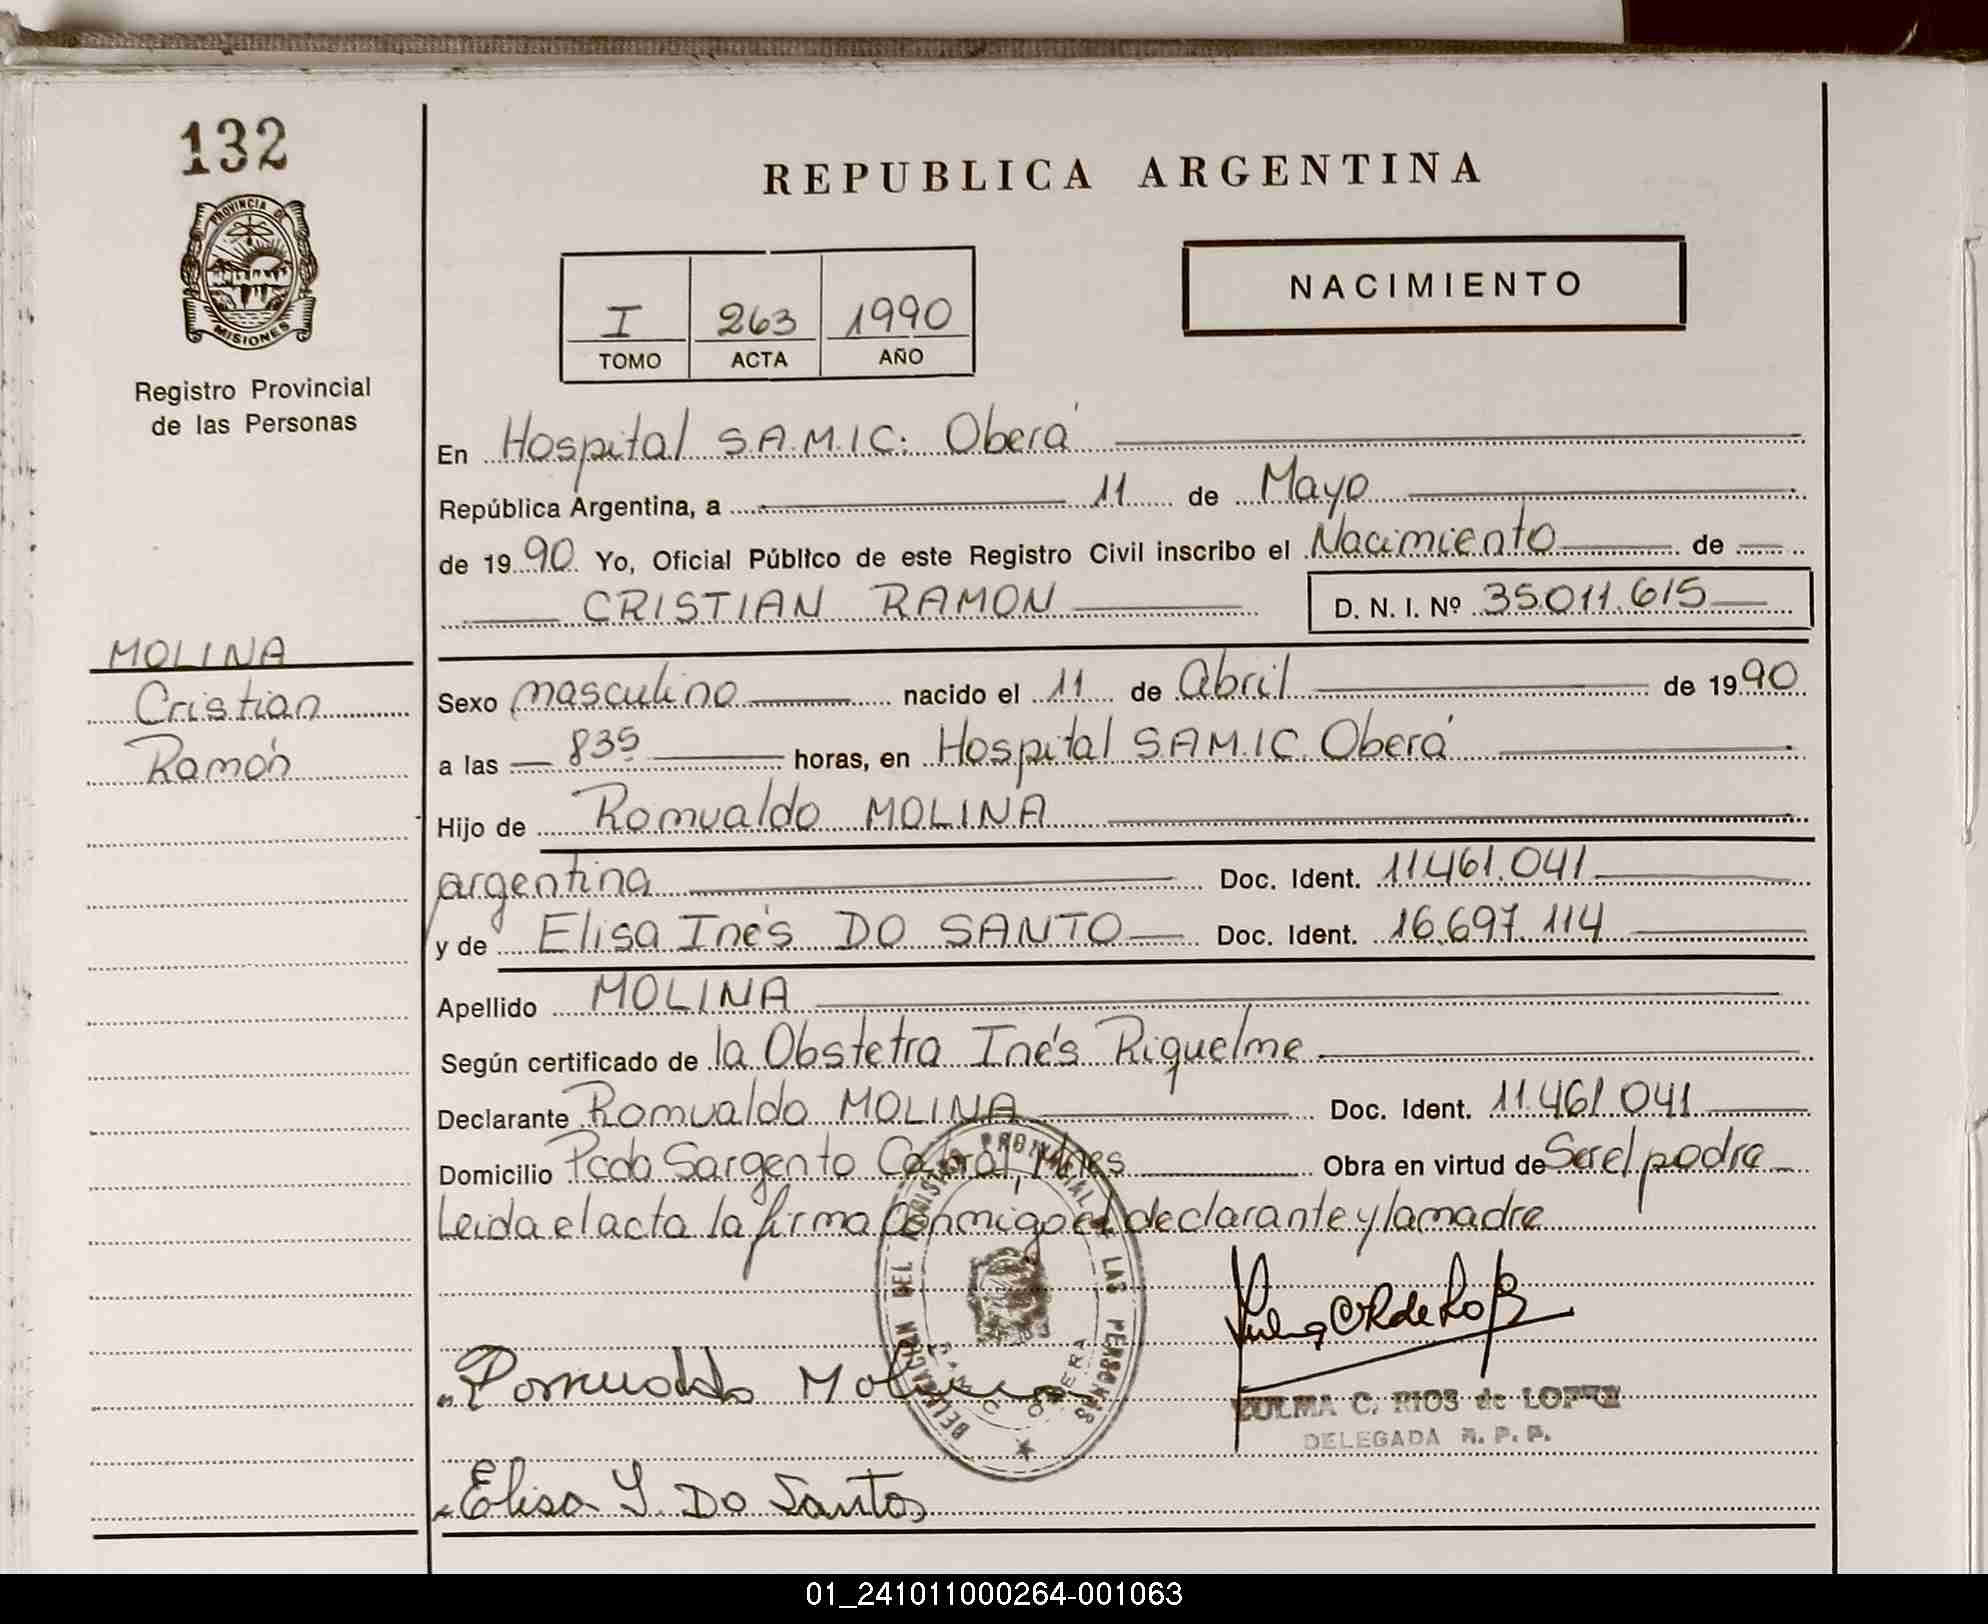 132
PROVINCIA DE
MISIONES
Registro Provincial
de las Personas
REPUBLICA ARGENTINA
I 263 1990
TOMO ACTA AÑO
NACIMIENTO
En Hospital S.A.M.I.C. Oberá
República Argentina, a 11 de Mayo
de 1990 Yo, Oficial Público de este Registro Civil inscribo el Nacimiento de
CRISTIAN RAMON D. N. I. Nº 35.011.615
MOLINA
Cristian
Ramón
Sexo masculino nacido el 11 de Abril de 1990
a las 835 horas, en Hospital S.A.M.I.C. Oberá
Hijo de Romualdo MOLINA
argentina Doc. Ident. 11.461.041
y de Elisa Inés DO SANTO Doc. Ident. 16.697.114
Apellido MOLINA
Según certificado de la Obstetra Inés Riquelme
Declarante Romualdo MOLINA Doc. Ident. 11.461.041
Domicilio Pcda Sargento Cabral, Mnes Obra en virtud de Ser el padre
Leida el acta la firma conmigo el declarante y la madre
DELEGACION DEL REGISTRO PROVINCIAL DE LAS PERSONAS
OBERA
Romualdo Molina
ZULMA C. RIOS de LOPEZ
DELEGADA R. P. P.
Elisa I. Do Santos
01_241011000264-001063